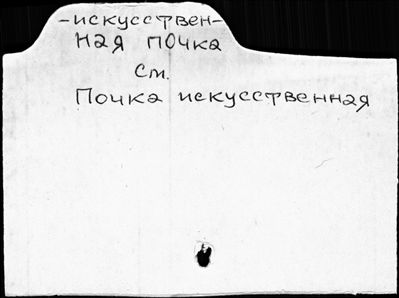 -искусствен-
ная почка
см.
Почка искусственная